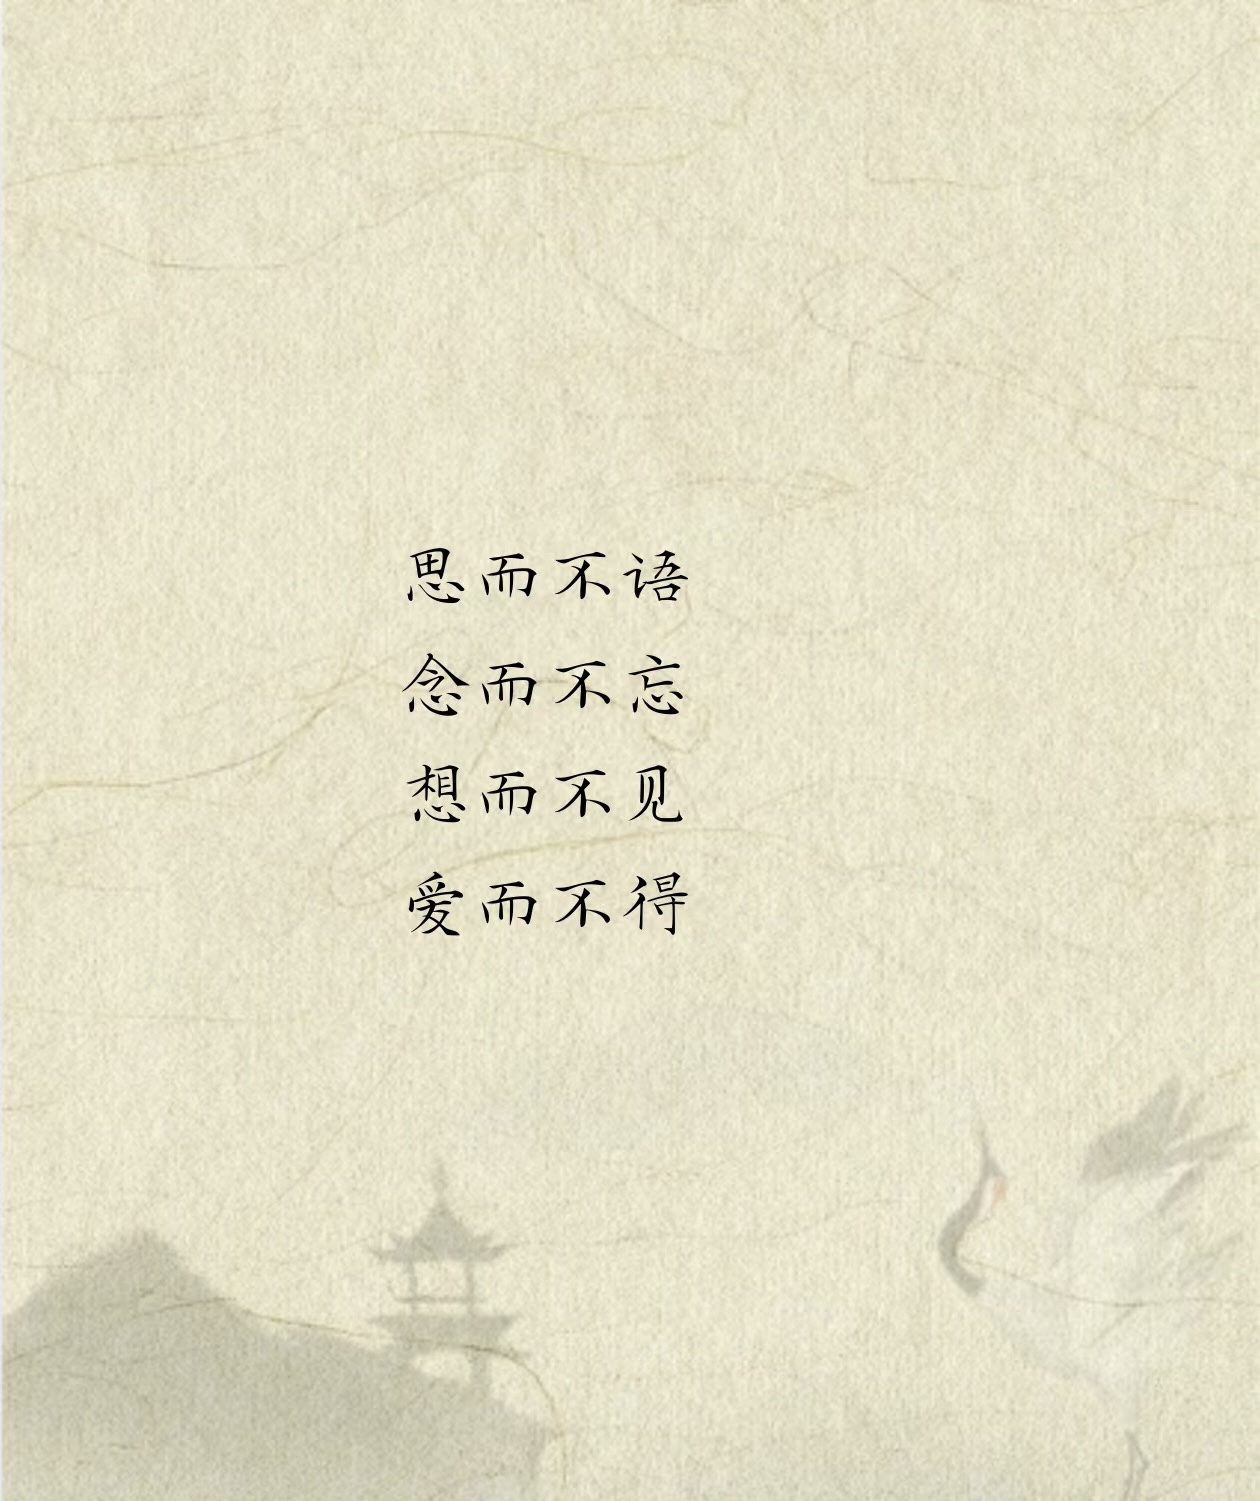 思而不语
念而不忘
想而不见
爱而不得